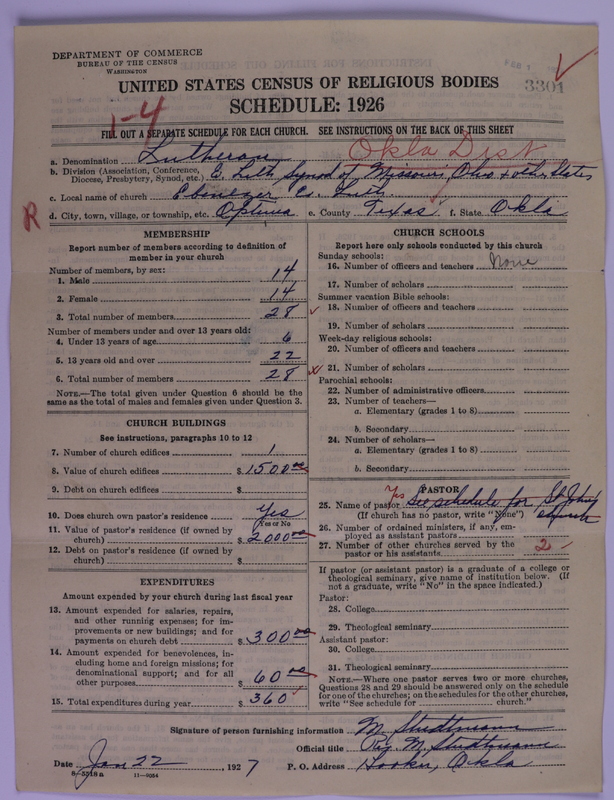 DEPARTMENT OF COMMERCE
BUREAU OF THE CENSUS
WASHINGTON
3301
UNITED STATES CENSUS OF RELIGIOUS BODIES
SCHEDULE: 1926
1-4
FILL OUT A SEPARATE SCHEDULE FOR EACH CHURCH. SEE INSTRUCTIONS ON THE BACK OF THIS SHEET
Okla Dist
a. Denomination Lutheran
b. Division (Association, Conference, Diocese, Presbytery, Synod, etc.) E. Luth Synod of Missouri, Ohio & oth. States
c. Local name of church Ebenezer Ev. Luth.
R
d. City, town, village, or township, etc. Optima e. County Texas f. State Okla
MEMBERSHIP
Report number of members according to definition of
member in your church
Number of members, by sex:
1. Male 14
2. Female 14
3. Total number of members 28
Number of members under and over 13 years old:
4. Under 13 years of age 6
5. 13 years old and over 22
6. Total number of members 28
NOTE.—The total given under Question 6 should be
same as the total of males and females given under Question 3.
CHURCH BUILDINGS
See instructions, paragraphs 10 to 12
7. Number of church edifices 1
8. Value of church edifices $1500.00
9. Debt on church edifices $
10. Does church own pastor's residence Yes
Yes or No
11. Value of pastor's residence (if owned by
church) $2000.00
12. Debt on pastor's residence (if owned by
church) $
EXPENDITURES
Amount expended by your church during last fiscal year
13. Amount expended for salaries, repairs,
and other running expenses; for im-
provements or new buildings; and for
payments on church debt $300.00
14. Amount expended for benevolences, in-
cluding home and foreign missions; for
denominational support; and for all
other purposes $60.00
15. Total expenditures during year $360
CHURCH SCHOOLS
Report here only schools conducted by this church
Sunday schools:
16. Number of officers and teachers None
17. Number of scholars
Summer vacation Bible schools:
18. Number of officers and teachers
19. Number of scholars
Week-day religious schools:
20. Number of officers and teachers
21. Number of scholars
Parochial schools:
22. Number of administrative officers
23. Number of teachers—
a. Elementary (grades 1 to 8)
b. Secondary
24. Number of scholars—
a. Elementary (grades 1 to 8)
b. Secondary
PASTOR
Yes
25. Name of pastor See schedule for St. John
(If church has no pastor, write "None") church
26. Number of ordained ministers, if any, em-
ployed as assistant pastors
27. Number of other churches served by the
pastor or his assistants 2
If pastor (or assistant pastor) is a graduate of a college or
theological seminary, give name of institution below. (If
not a graduate, write "No" in the space indicated.)
Pastor:
28. College
29. Theological seminary
Assistant pastor:
30. College
31. Theological seminary
NOTE.—Where one pastor serves two or more churches,
Questions 28 and 29 should be answered only on the schedule
for one of the churches; on the schedules for the other churches,
write "See schedule for church."
Signature of person furnishing information M. Studtmann
Official title Rev. M. Studtmann
Date Jan 22, 1927 P. O. Address Hooker, Okla
8-5518a 11-9054